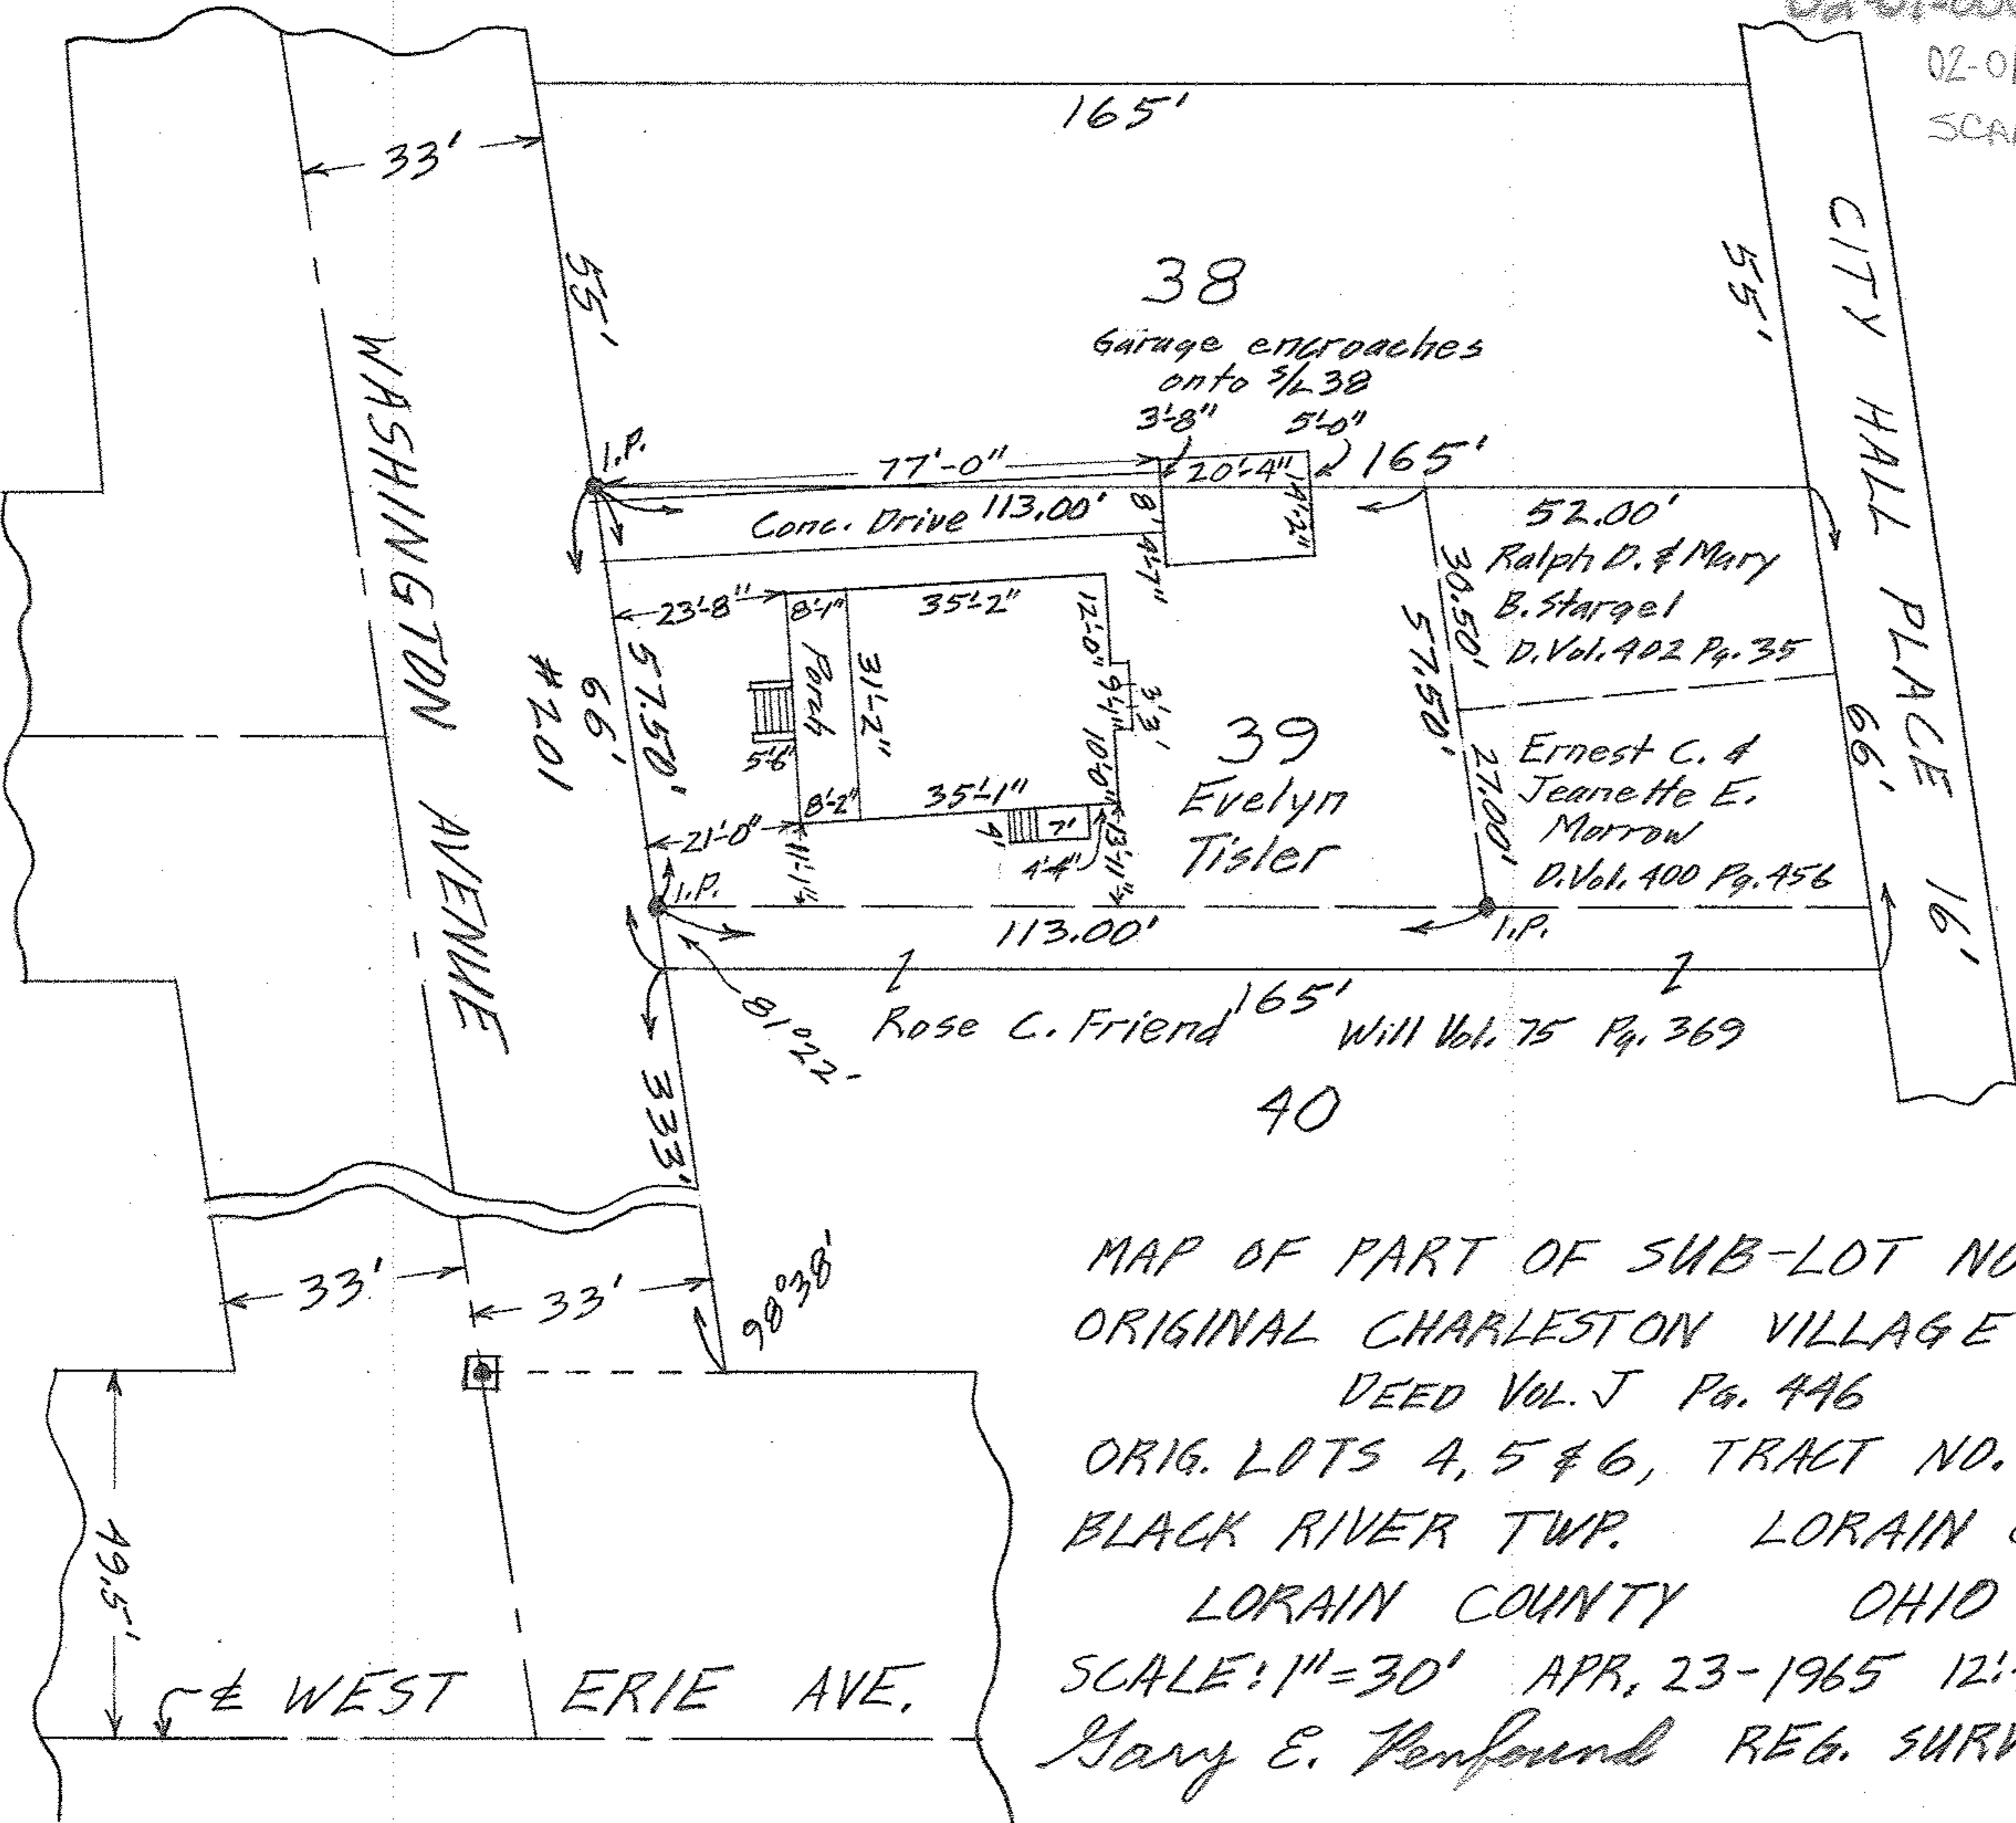 02-01
SCAN
165'
33'
55'
55'
WASHINGTON AVENUE
CITY HALL PLACE 16'
38
Garage encroaches
onto S/L 38
3'-8" 5'-0"
I.P.
77'-0"
20'-4"
165'
Conc. Drive
113.00'
8'
14'-2"
4'-7"
52.00'
Ralph D. & Mary
B. Stargel
D.Vol. 402 Pg. 35
30.50'
57.50'
23'-8"
8'-1"
35'-2"
12'-0"
Porch
31'-2"
9'-1"
3'3'
10'-0"
57.50'
66'
#201
5'6"
8'-2"
35'-1"
39
Evelyn
Tisler
27.00'
Ernest C. &
Jeanette E.
Morrow
D.Vol. 400 Pg. 456
66'
21'-0"
11'-1"
7'
4'4"
13'-11"
I.P.
113.00'
I.P.
165'
Rose C. Friend Will Vol. 75 Pg. 369
81°22'
333'
40
33'
33'
98°38'
49.5'
℄ WEST ERIE AVE.
MAP OF PART OF SUB-LOT NO
ORIGINAL CHARLESTON VILLAGE
DEED VOL. J PG. 446
ORIG. LOTS 4, 5 & 6, TRACT NO.
BLACK RIVER TWP. LORAIN
LORAIN COUNTY OHIO
SCALE: 1"=30' APR. 23-1965 12:
Gary E. Penfound REG. SURV